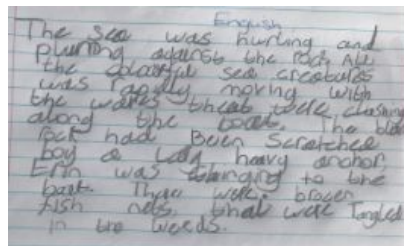 English
The sea was hurling and
against the rock All
the colourful sea creatures
was rapidly moving with
the waves that were clashing
along the boat. The
rock had Been scratched
boy a heavy anchor
Erin was to the
boat. There were brocen
fish nets that were Tangled
in the weeds.